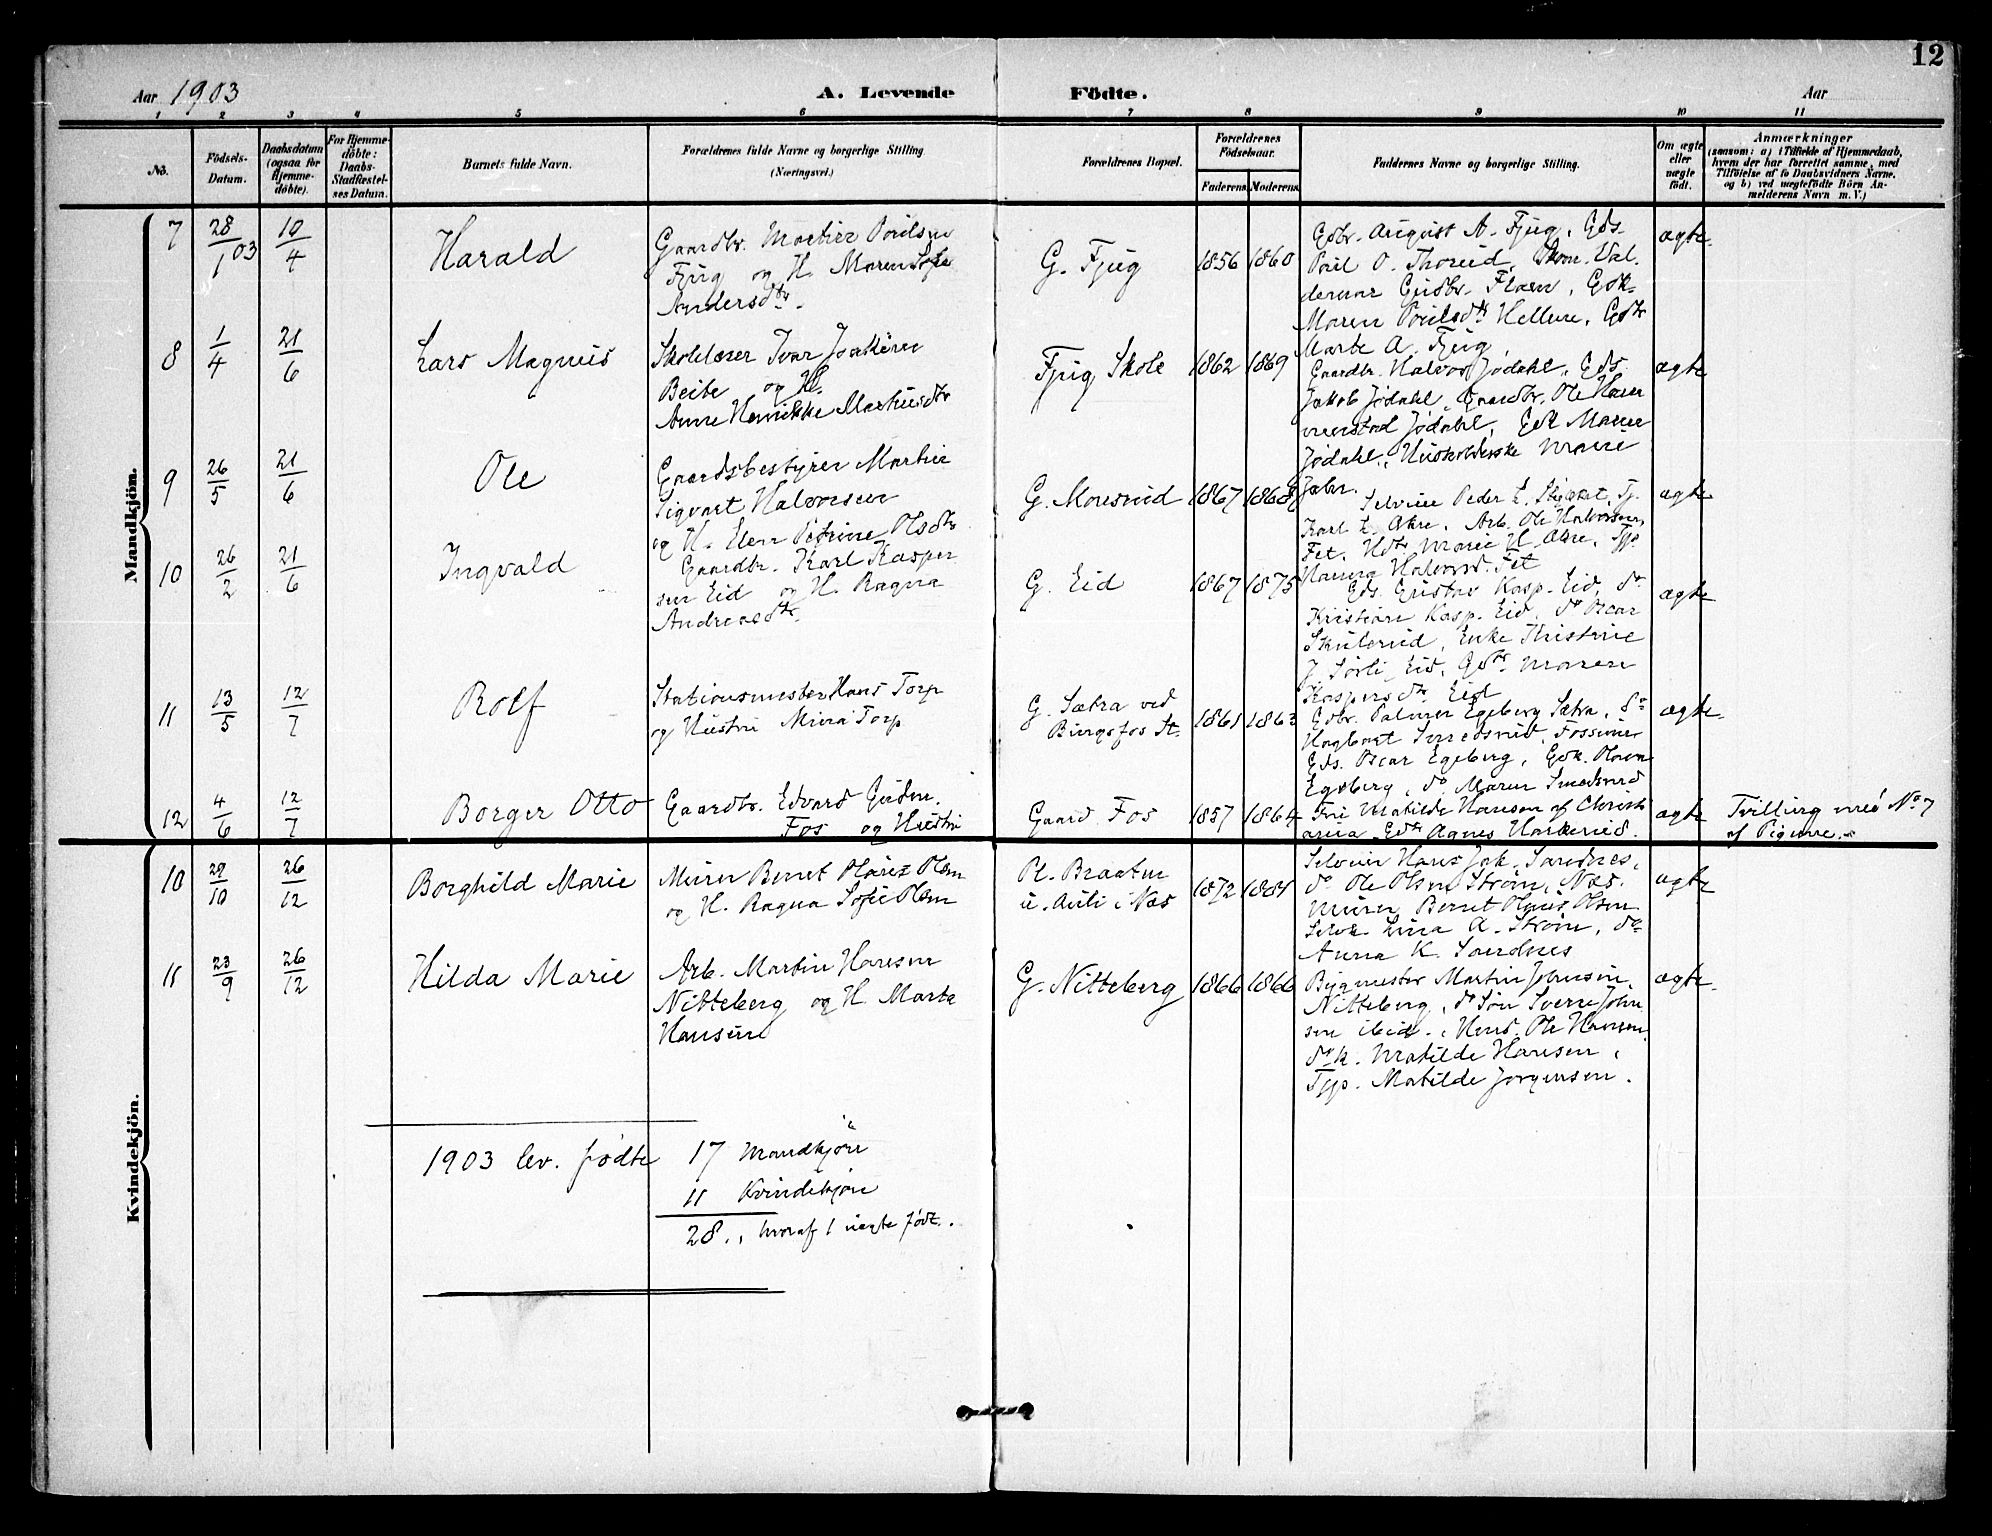 12
Aar 1903
A. Levende Födte.
Aar
1 2 3 4 5 6 7 8 9 10 11
No.
Födsels-Datum.
Daabsdatum (ogsaa for Hjemme-døbte).
For Hjemme-døbte: Daabs-Stadfæstel-ses Datum.
Barnets fulde Navn.
Forældrenes fulde Navne og borgerlige Stilling
(Næringsvei.)
Forældrenes Bopæl.
Forældrenes Födselsaar.
Faderens. Moderens.
Faddernes Navne og borgerlige Stilling.
Om ægte eller uægte født.
Anmærkninger
(saasom: a) i Tilfælde af Hjemmedaab,
hvem der har forrettet samme, med
Tilföielse af to Daabsvidners Navne.
og b) ved uægtefödte Börn An-
melderens Navn m. V.)
Mandkjön.
7
28/1 03
10/4
Harald
Gaardbr. Martin Poulsen
Fjug og H. Maren Sofie
Andersdtr.
G. Fjug
1856 1860
Gdbr. August A. Fjug, Gds.
Poul O. Thorud, Skom. Val-
demar Gudbr. Flaen, Gdk.
Maren Poulsdtr Hellure, Gdtr
Marte A. Fjug
ægte
8
1/4
21/6
Lars Magnus
Skolelærer Ivar Joakim
Beite og H.
Anne Henrikke Martiusdtr
Fjug Skole
1862 1869
Gaardbr. Halvor Jødahl, Gds.
Jakob Jødahl, Gaardbr. Ole Ham
merstad Jødahl, Gdk Maren
Jødahl, Husholderske Marie
ægte
9
26/5
21/6
Ole
Gaardsbestyrer Martin
Sigvart Halvorsen
og H. Elen Petrine Olsdtr
G. Moresrud
1867 1868
Selveier Peder L.
Karl L. Akre, Arb. Ole Halvorsen
Fet. Marie H. Akre, Tjp.
Halvorsd. Fet
ægte
10
26/2
21/6
Ingvald
Gaardbr. Karl Kasper
sen Eid og H. Ragna
Andreasdtr.
G. Eid
1867 1875
Gds. Gustav Kasp. Eid, do
Kristian Kasp. Eid, do Oscar
Skulerud, Enke Kristine
J. Sørli Eid, Gdtr. Maren
Kaspersdtr Eid
ægte
11
13/5
12/7
Rolf
Stationsmester Hans Torp
og Hustru Mina Torp
G. Sætra ved
Bingsfos St.
1861 1863
Gdbr. Palmer Egeberg Sætra, do
Hagbart Smedsrud, Fossum
Gds. Oscar Egeberg, Gdk. Olava
Egeberg, do Maren Smedsrud
ægte
12
4/6
12/7
Borger Otto
Gaardbr. Edvard Gudm.
Fos og Hustru
Gaard Fos
1857 1864
Frk Matilde Hansen af Christi
ania Gdtr Agnes
ægte
Tvilling med No 7
af Pigerne.
Kvindekjön.
10
29/10
26/12
Borghild Marie
Murer Bernt Olsen
og H. Ragna Sofie Olsen
Pl. Braaten
u. Auli i Næs
1872
Selveier Hans Jak. Sandnes,
do Ole Olsen Strøm, Næs.
Murer Bernt Olsen
Selvk. Lina A. Strøm, do
Anna K. Sandnes
ægte
11
23/9
26/12
Hilda Marie
Arb. Martin Hansen
Nitteberg og H. Marte
Hansen
G. Nitteberg
1866 1866
Bygmester Martin Johnsen
Nitteberg, do Søn Sverre John
sen ibid., Ole Hansen
do k. Matilde Hansen,
Tjp. Matilde Jørgensen.
ægte.
1903 lev. fødte 17 Mandkjøn
11 Kvindekjøn
28., hvoraf 1 uægte født.